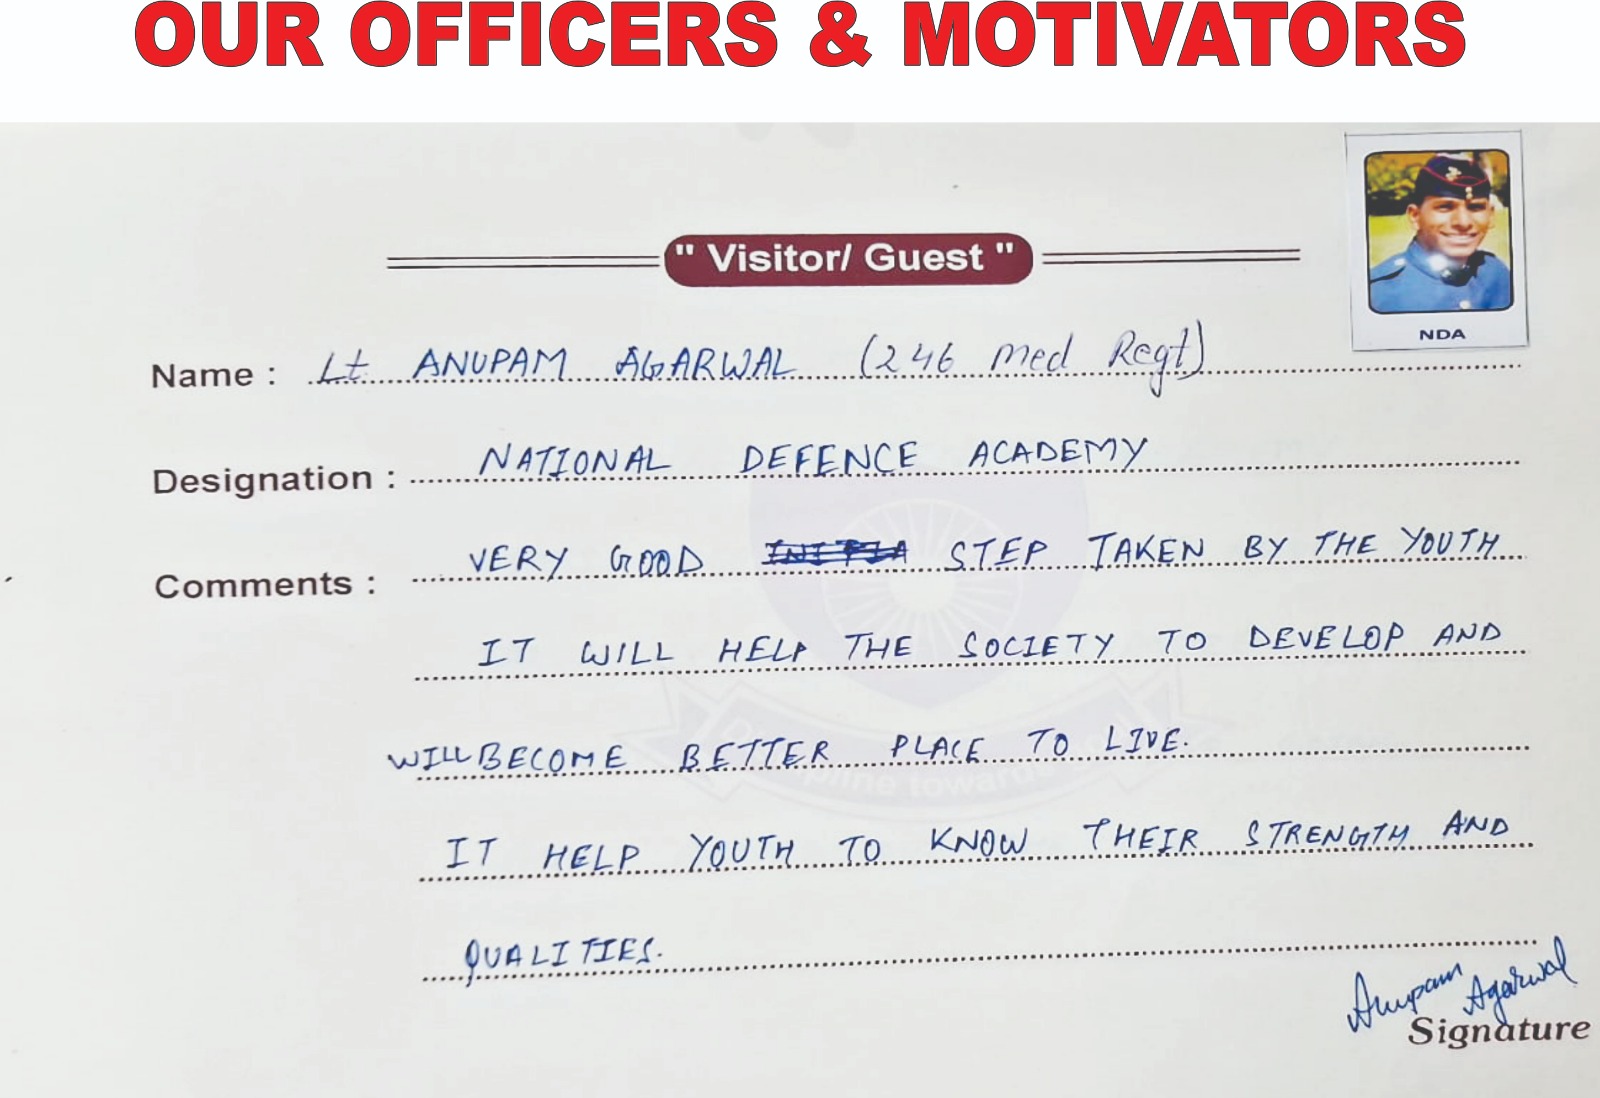 OUR OFFICERS & MOTIVATORS
" Visitor/ Guest "
NDA
Name : Lt ANUPAM AGARWAL (246 Med Regt)
Designation : NATIONAL DEFENCE ACADEMY
Comments : VERY GOOD STEP TAKEN BY THE YOUTH
IT WILL HELP THE SOCIETY TO DEVELOP AND
WILL BECOME BETTER PLACE TO LIVE.
IT HELP YOUTH TO KNOW THEIR STRENGTH AND
QUALITIES.
Anupam Agarwal
Signature